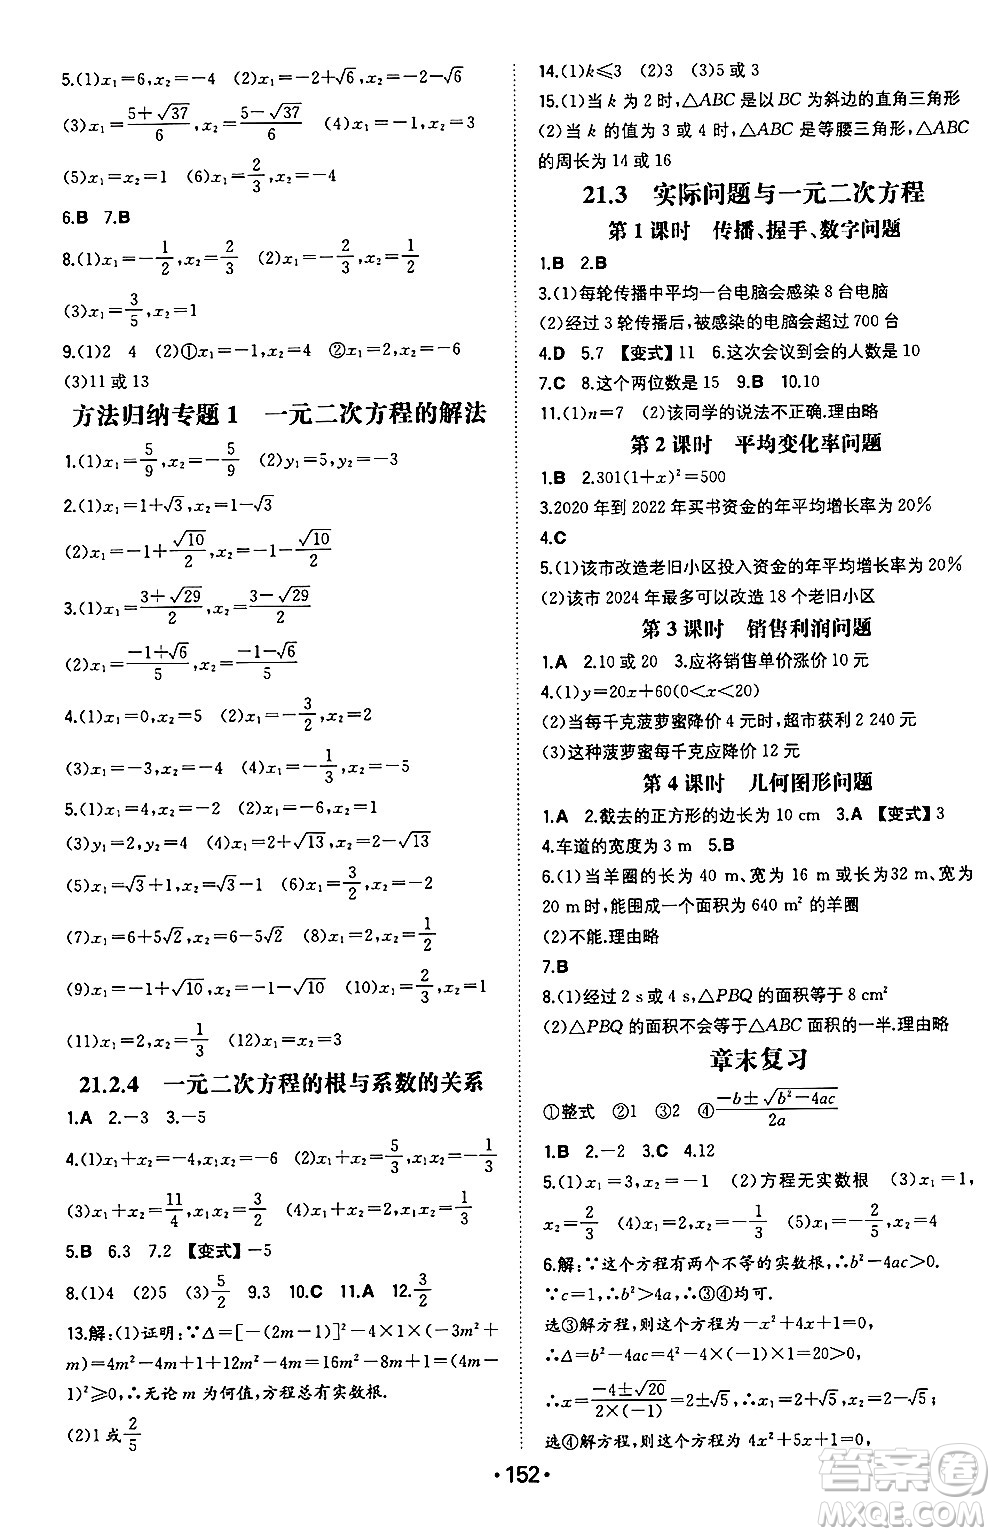 5.(1)x₁=6,x₂=-4 (2)x₁=-2+√6,x₂=-2-√6
(3)x₁=(5+√37)/6,x₂=(5-√37)/6 (4)x₁=-1,x₂=3
(5)x₁=x₂=1 (6)x₁=2/3,x₂=-4
6.B 7.B
8.(1)x₁=-1/2,x₂=2/3 (2)x₁=-1/2,x₂=1/2
(3)x₁=3/5,x₂=1
9.(1)2 4 (2)①x₁=-1,x₂=4 ②x₁=2,x₂=-6
(3)11 或 13
方法归纳专题 1 一元二次方程的解法
1.(1)x₁=5/9,x₂=-5/9 (2)y₁=5,y₂=-3
2.(1)x₁=1+√3,x₂=1-√3
(2)x₁=-1+√10/2,x₂=-1-√10/2
3.(1)x₁=(3+√29)/2,x₂=(3-√29)/2
(2)x₁=(-1+√6)/5,x₂=(-1-√6)/5
4.(1)x₁=0,x₂=5 (2)x₁=-2/3,x₂=2
(3)x₁=-3,x₂=4 (4)x₁=-1/3,x₂=-5
5.(1)x₁=4,x₂=-2 (2)x₁=-6,x₂=1
(3)y₁=y₂=2 (4)x₁=2+√13,x₂=2-√13
(5)x₁=√3+1,x₂=√3-1 (6)x₁=2/3,x₂=-2
(7)x₁=6+5√2,x₂=6-5√2 (8)x₁=1,x₂=1/2
(9)x₁=-1+√10,x₂=-1-√10 (10)x₁=2/5,x₂=1
(11)x₁=-2,x₂=1/3 (12)x₁=x₂=3
21.2.4 一元二次方程的根与系数的关系
1.A 2.-3 3.-5
4.(1)x₁+x₂=-4,x₁x₂=-6 (2)x₁+x₂=5/3,x₁x₂=-1/3
(3)x₁+x₂=11/4,x₁x₂=3/2 (4)x₁+x₂=1,x₁x₂=-4/3
5.B 6.3 7.2 【变式】-5
8.(1)4 (2)5 (3)5/2 9.3 10.C 11.A 12.3/2
13.解:(1)证明:∵Δ=[-(2m-1)]²-4×1×(-3m²+
m)=4m²-4m+1+12m²-4m=16m²-8m+1=(4m-
1)²≥0,∴无论 m 为何值,方程总有实数根.
(2)1 或 2/5
14.(1)k≤3 (2)3 (3)5 或 3
15.(1)当 k 为 2 时,△ABC 是以 BC 为斜边的直角三角形
(2)当 k 的值为 3 或 4 时,△ABC 是等腰三角形,△ABC
的周长为 14 或 16
21.3 实际问题与一元二次方程
第 1 课时 传播、握手、数字问题
1.B 2.B
3.(1)每轮传播中平均一台电脑会感染 8 台电脑
(2)经过 3 轮传播后,被感染的电脑会超过 700 台
4.D 5.7 【变式】11 6.这次会议到会的人数是 10
7.C 8.这个两位数是 15 9.B 10.10
11.(1)n=7 (2)该同学的说法不正确.理由略
第 2 课时 平均变化率问题
1.B 2.301(1+x)²=500
3.2020 年到 2022 年买书资金的年平均增长率为 20%
4.C
5.(1)该市改造老旧小区投入资金的年平均增长率为 20%
(2)该市 2024 年最多可以改造 18 个老旧小区
第 3 课时 销售利润问题
1.A 2.10 或 20 3.应将销售单价涨价 10 元
4.(1)y=20x+60(0<x<20)
(2)当每千克菠萝蜜降价 4 元时,超市获利 2 240 元
(3)这种菠萝蜜每千克应降价 12 元
第 4 课时 几何图形问题
1.A 2.截去的正方形的边长为 10 cm 3.A 【变式】3
4.车道的宽度为 3 m 5.B
6.(1)当羊圈的长为 40 m、宽为 16 m 或长为32 m、宽为
20 m时,能围成一个面积为 640 m² 的羊圈
(2)不能.理由略
7.B
8.(1)经过 2 s 或 4 s,△PBQ 的面积等于 8 cm²
(2)△PBQ 的面积不会等于△ABC 面积的一半.理由略
章末复习
①整式 ②1 ③2 ④(-b±√(b²-4ac))/2a
1.B 2.-2 3.C 4.12
5.(1)x₁=3,x₂=-1 (2)方程无实数根 (3)x₁=1,
x₂=2/3 (4)x₁=2,x₂=-1/3 (5)x₁=-2/5,x₂=4
6.解:∵这个方程有两个不等的实数根,∴b²-4ac>0.
∵c=1,∴b²-4a>0,∴③④均可.
选③解方程,则这个方程为-x²+4x+1=0,
∴Δ=b²-4ac=4²-4×(-1)×1=20>0,
∴x=(-4±√20)/(2×(-1))=2±√5,∴x₁=2+√5,x₂=2-√5;
选④解方程,则这个方程为 4x²+5x+1=0,
·152·
答案圈
MXQE.COM